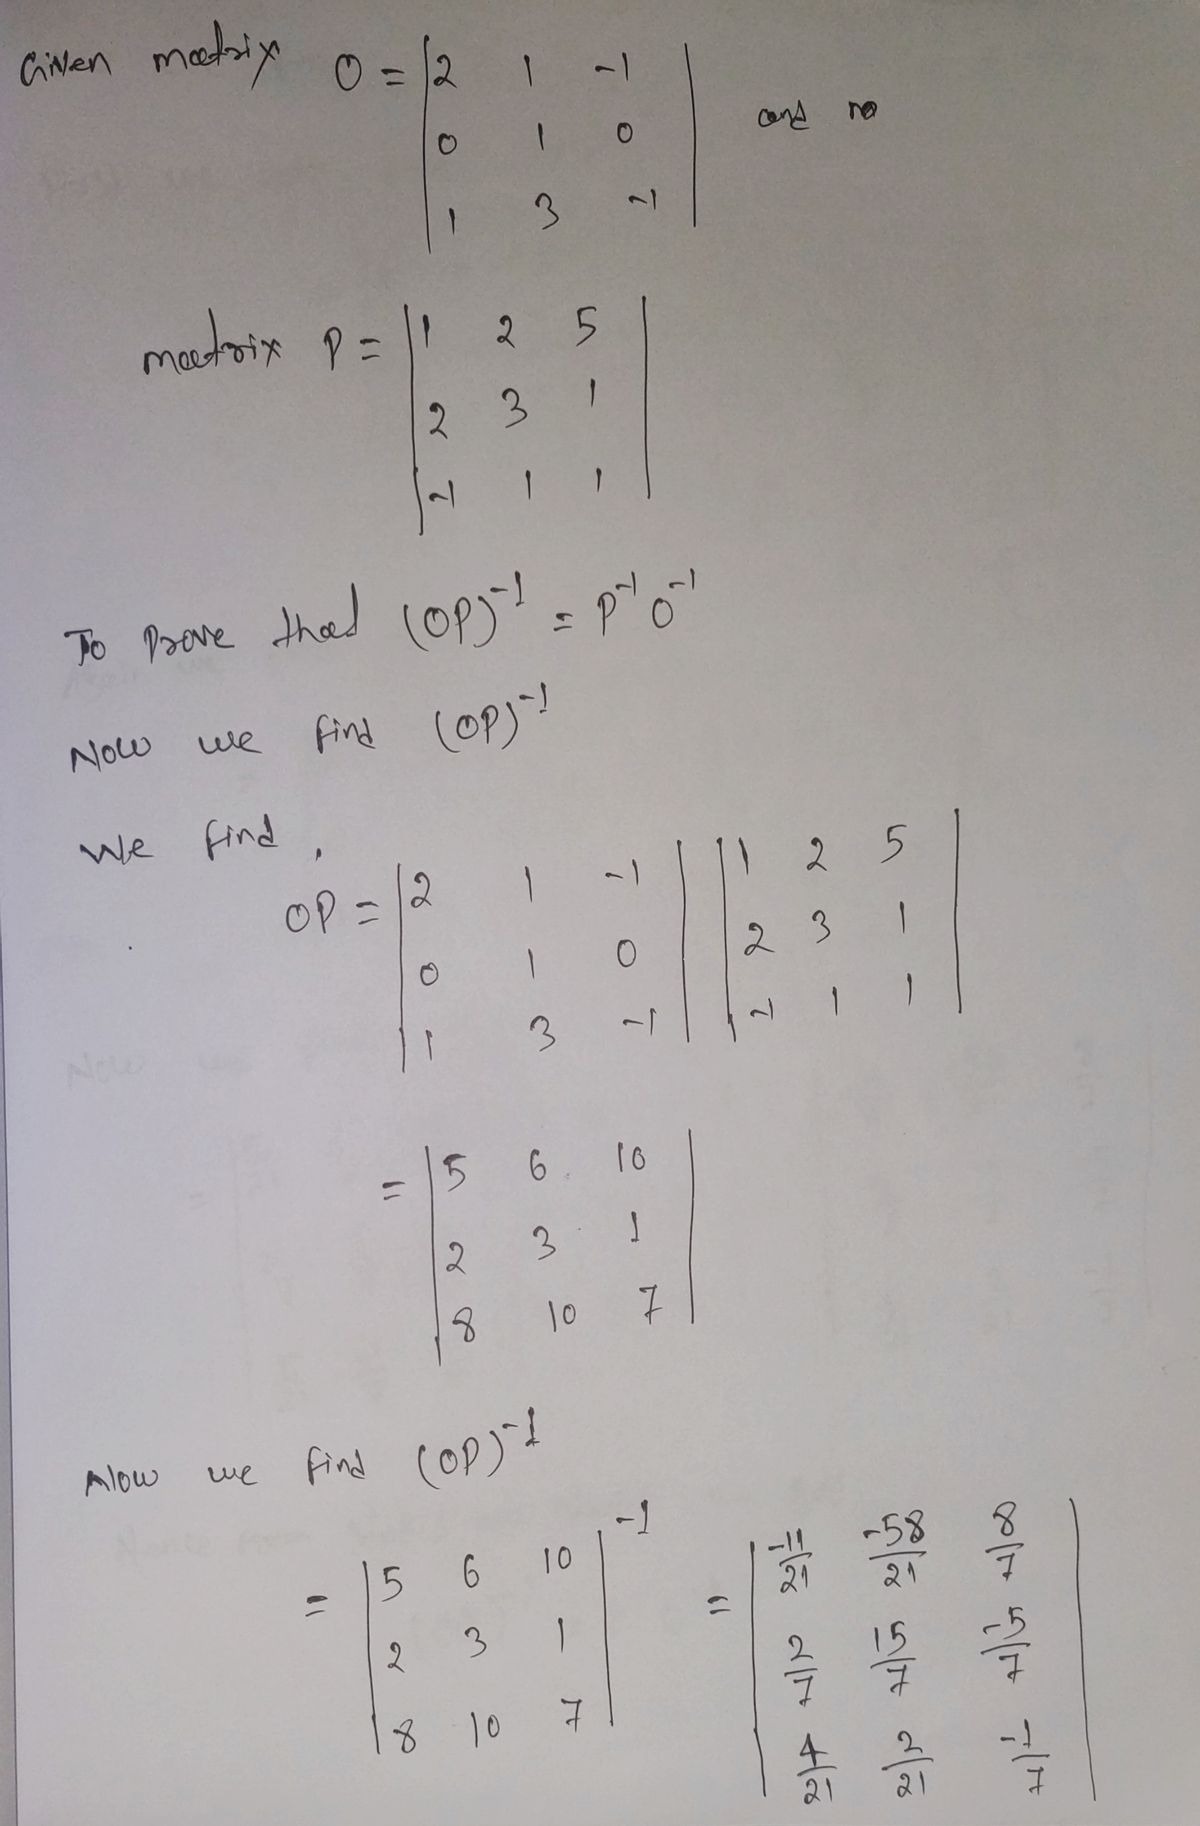 Given matrix O = |2 1 -1| and no
|0 1 0|
|1 3 -1|
matrix P = |1 2 5|
|2 3 1|
|-1 1 1|
To Prove that (OP)⁻¹ = P⁻¹ O⁻¹
Now we find (OP)⁻¹
We find,
OP = |2 1 -1| |1 2 5|
|0 1 0| |2 3 1|
|1 3 -1| |-1 1 1|
= |5 6 10|
|2 3 1|
|8 10 7|
Now we find (OP)⁻¹
= |5 6 10|⁻¹ = |-11/21 -58/21 8/7|
|2 3 1| |2/7 15/7 -5/7|
|8 10 7| |4/21 2/21 -1/7|